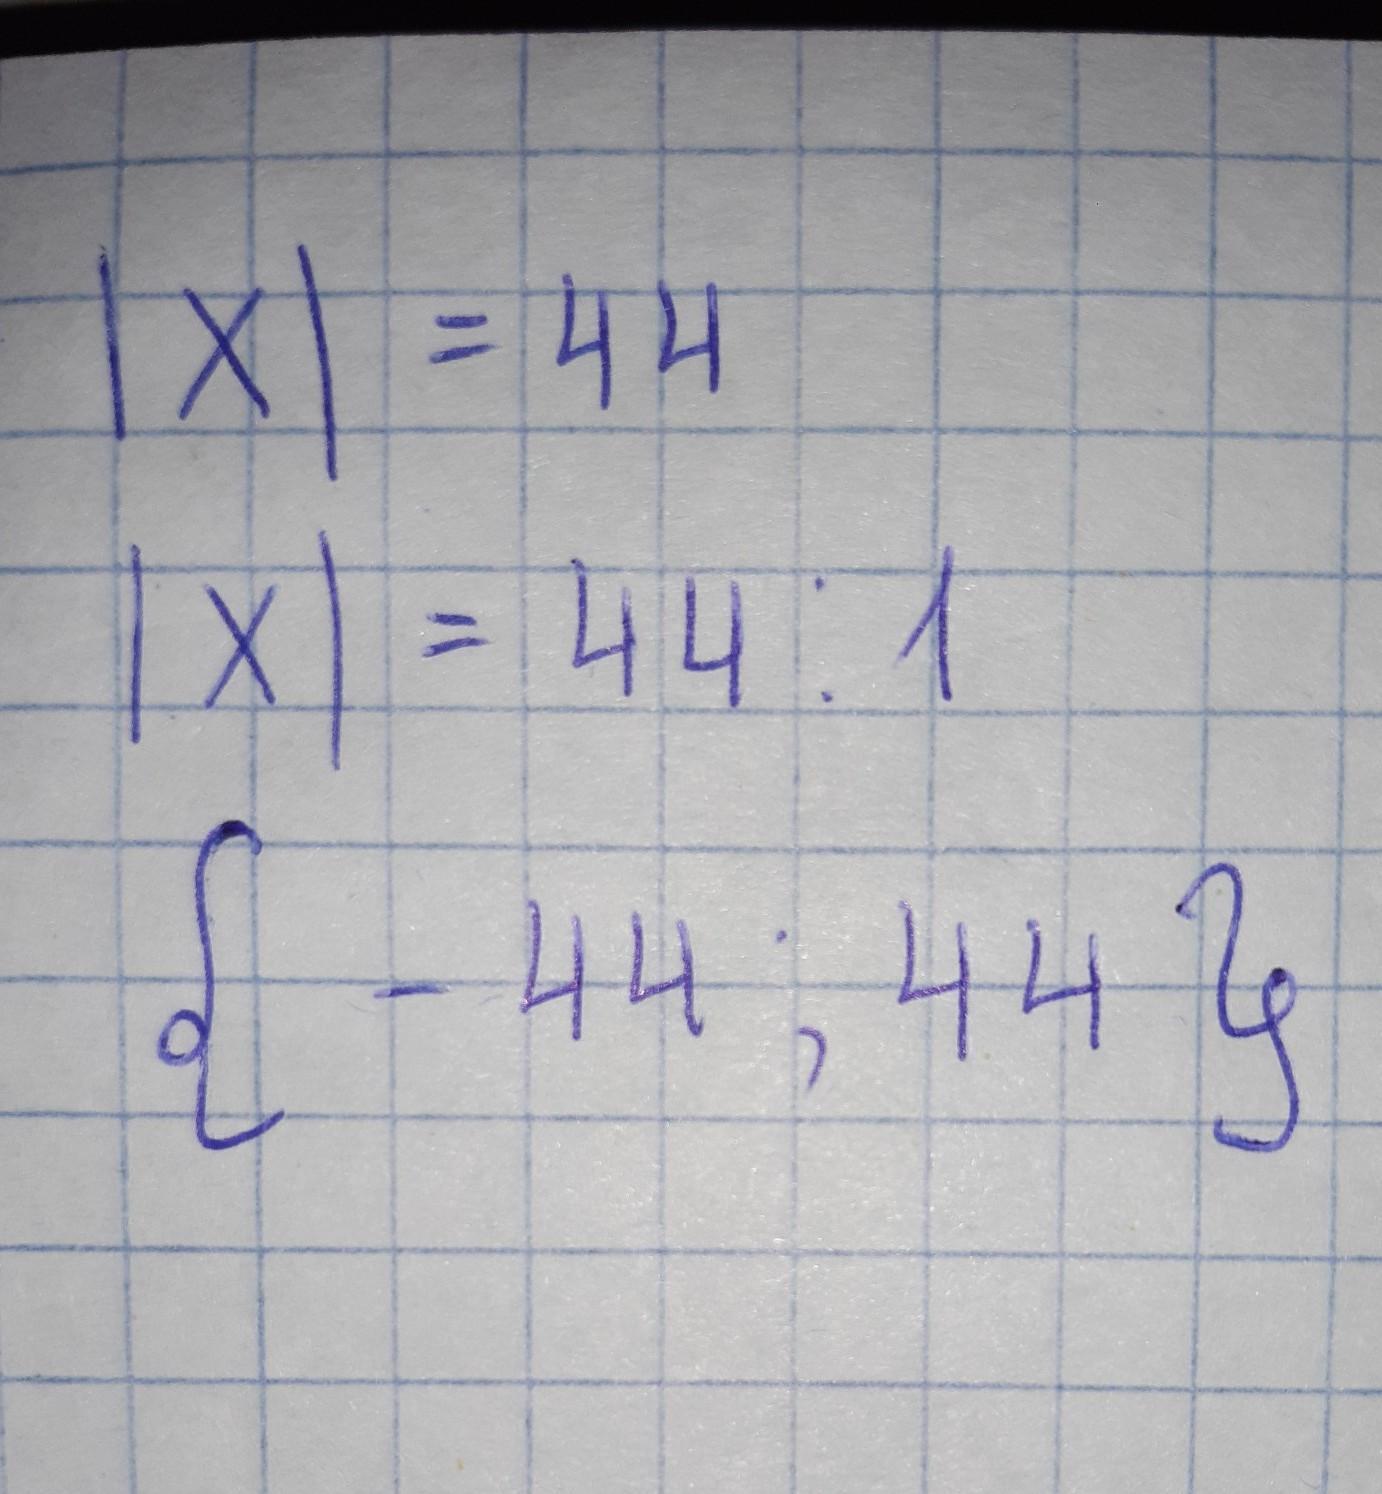 |x| = 44
|x| = 44 : 1
{ - 44 ; 44 }